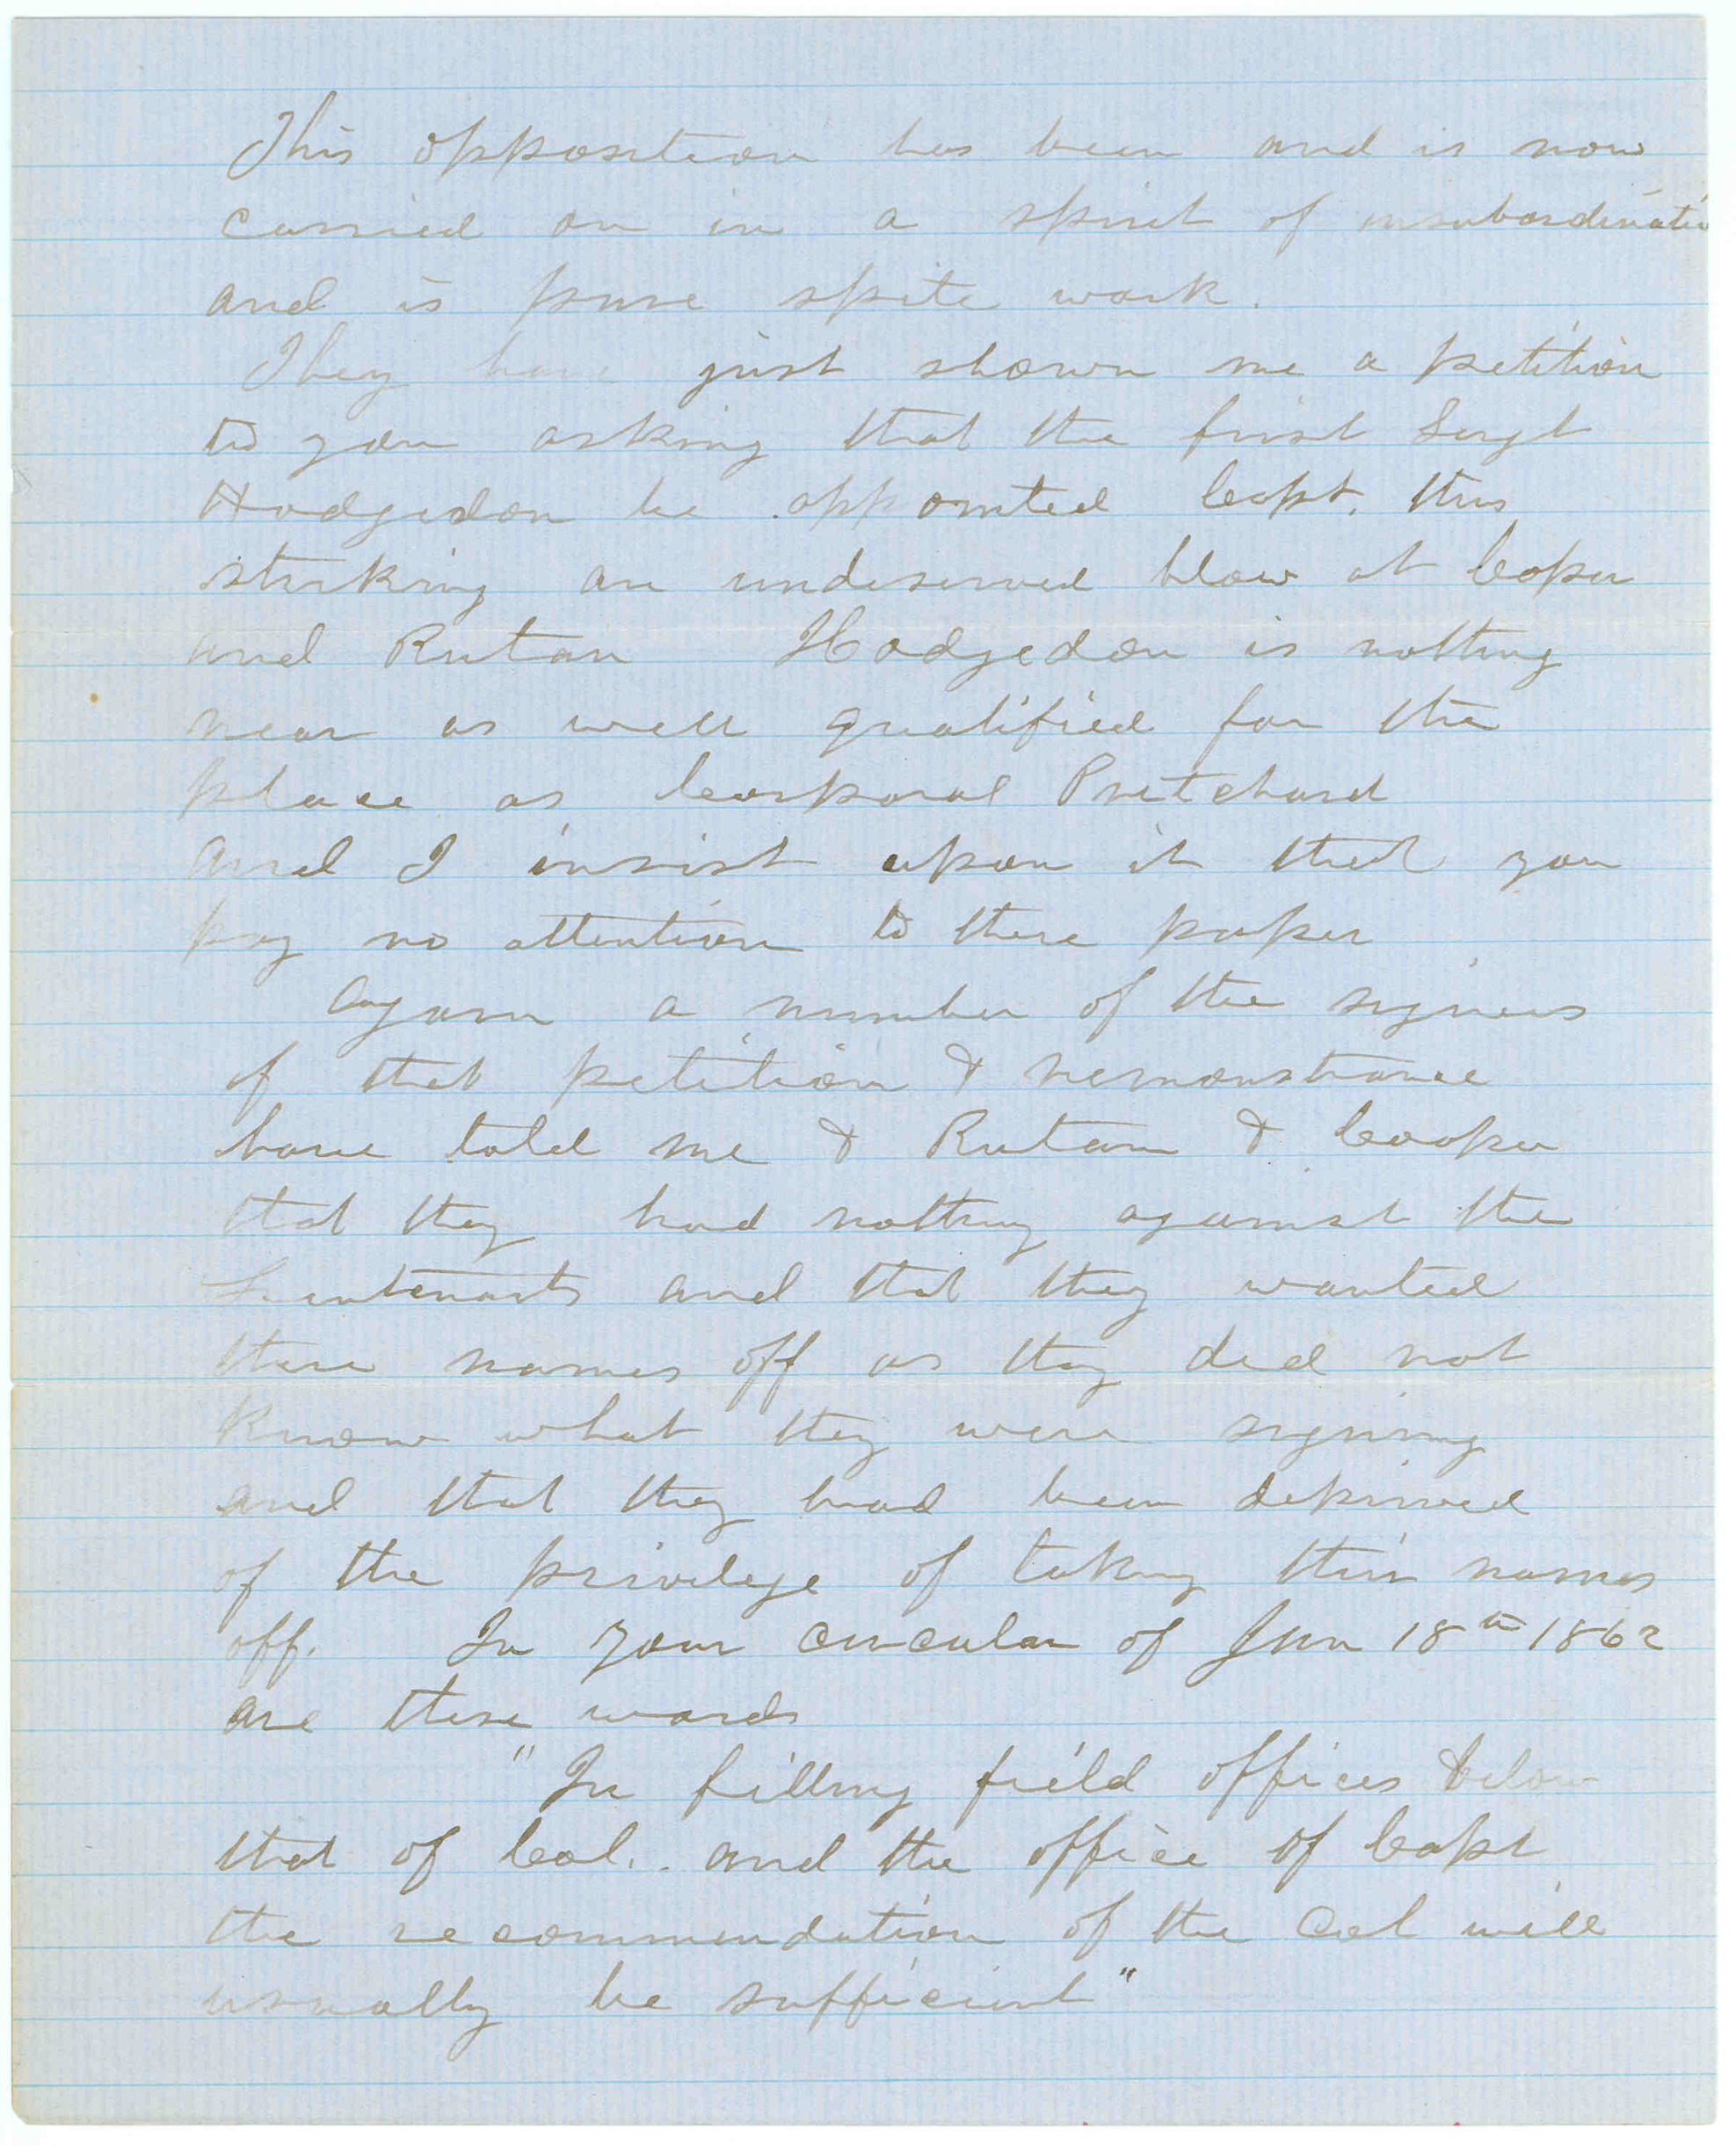 This opposition has been and is now
carried on in a spirit of insubordinatio
and is pure spite work.
They have just shown me a petition
to you asking that the first Sergt
Hodgedon be appointed Capt. thus
striking an undeserved blow at Cooper
and Rutan Hodgedon is nothing
near as well qualified for the
place as Corporal Pritchard
and I insist upon it that you
pay no attention to there paper
Again a number of the signers
of that petition & remonstrance
have told me & Rutan & Cooper
that they had nothing against the
Lieutenants and that they wanted
there names off as they did not
know what they were signing
and that they had been deprived
of the privilege of taking their names
off. In your circular of Jun 18th 1862
are these words
"In filling field offices below
that of Col. and the office of Capt
the recommendation of the Col will
usually be sufficient"